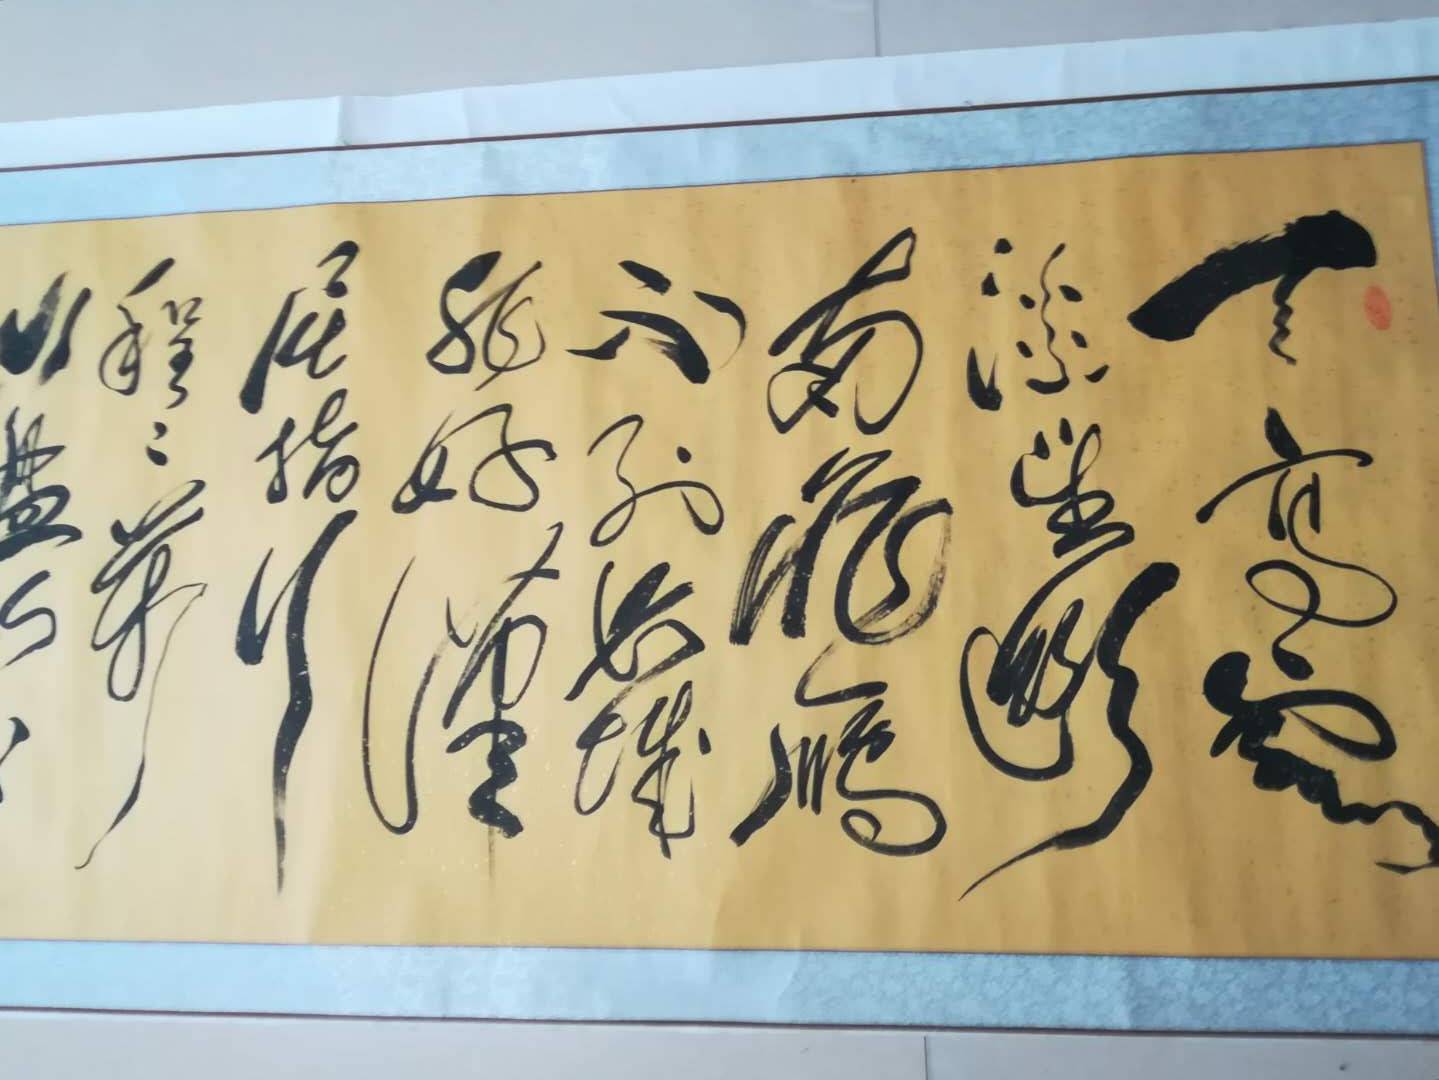 天高云
淡望断
南飞雁
不到长城
非好汉
屈指行
程二万
六盘山